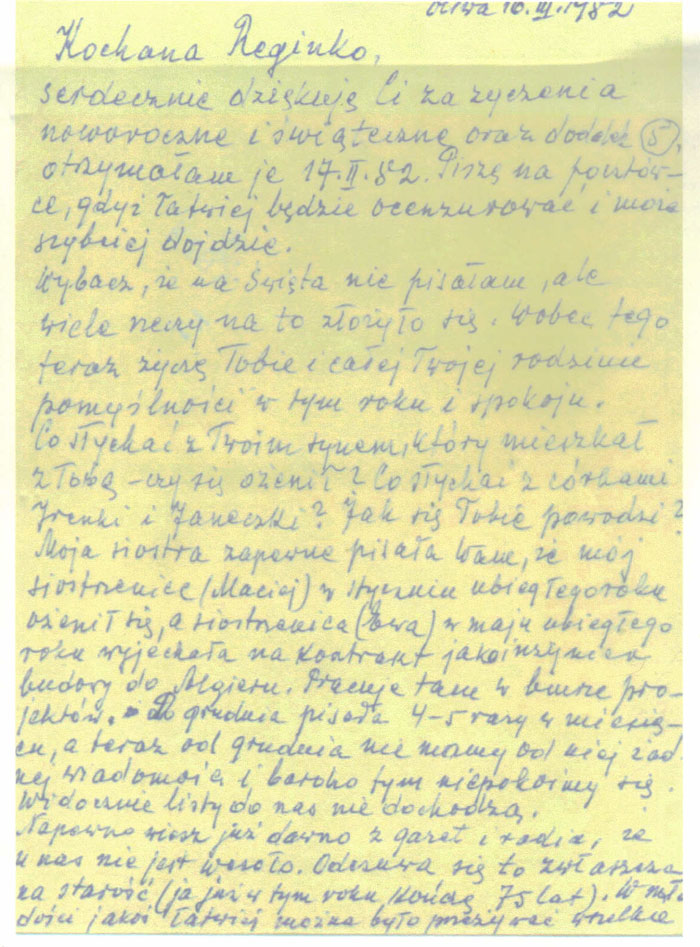 Oliwa 10.III.1982
Kochana Reginko,
serdecznie dziękuję Ci za życzenia
noworoczne i świąteczne oraz dodatek (5),
otrzymałam je 17.II.82. Piszę na pocztów-
ce, gdyż łatwiej będzie ocenzurować i może
szybciej dojdzie.
Wybacz, że na Święta nie pisałam, ale
wiele rzeczy na to złożyło się. Wobec tego
teraz życzę Tobie i całej Twojej rodzinie
pomyślności w tym roku i spokoju.
Co słychać z Twoim synem, który mieszkał
z Tobą - czy się ożenił? Co słychać z córkami
Irenki i Janeczki? Jak się Tobie powodzi?
Moja siostra zapewne pisała Wam, że mój
siostrzeniec (Maciej) w styczniu ubiegłego roku
ożenił się, a siostrzenica (Ewa) w maju ubiegłego
roku wyjechała na kontrakt jako inżynier
budowy do Algieru. Pracuje tam w biurze pro-
jektów. - Do grudnia pisała 4-5 razy w miesią-
cu, a teraz od grudnia nie mamy od niej żad
nej wiadomości i bardzo tym niepokoimy się.
Widocznie listy do nas nie dochodzą.
Napewno wiesz już dawno z gazet i radia, że
u nas nie jest wesoło. Odczuwa się to zwłaszcza
na starość (ja już w tym roku kończę 75 lat). W mło
dości jakoś łatwiej można było przeżywać wszelkie